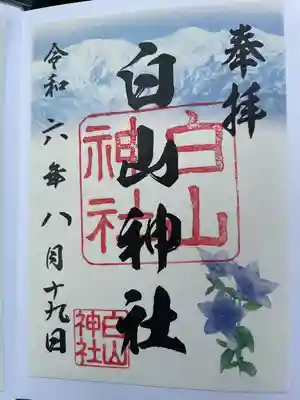 奉拝
白山神社
白山神社
令和六年八月十九日
白山神社